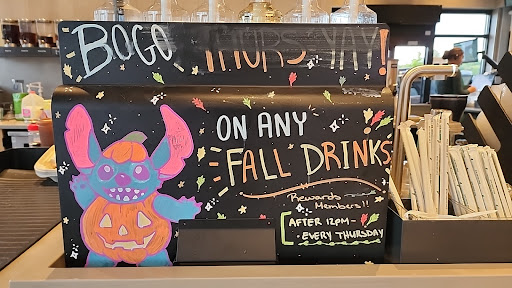 BOGO THURS-YAY!
ON ANY
FALL DRINKS
Rewards
Members!!
AFTER 12PM-
· EVERY THURSDAY